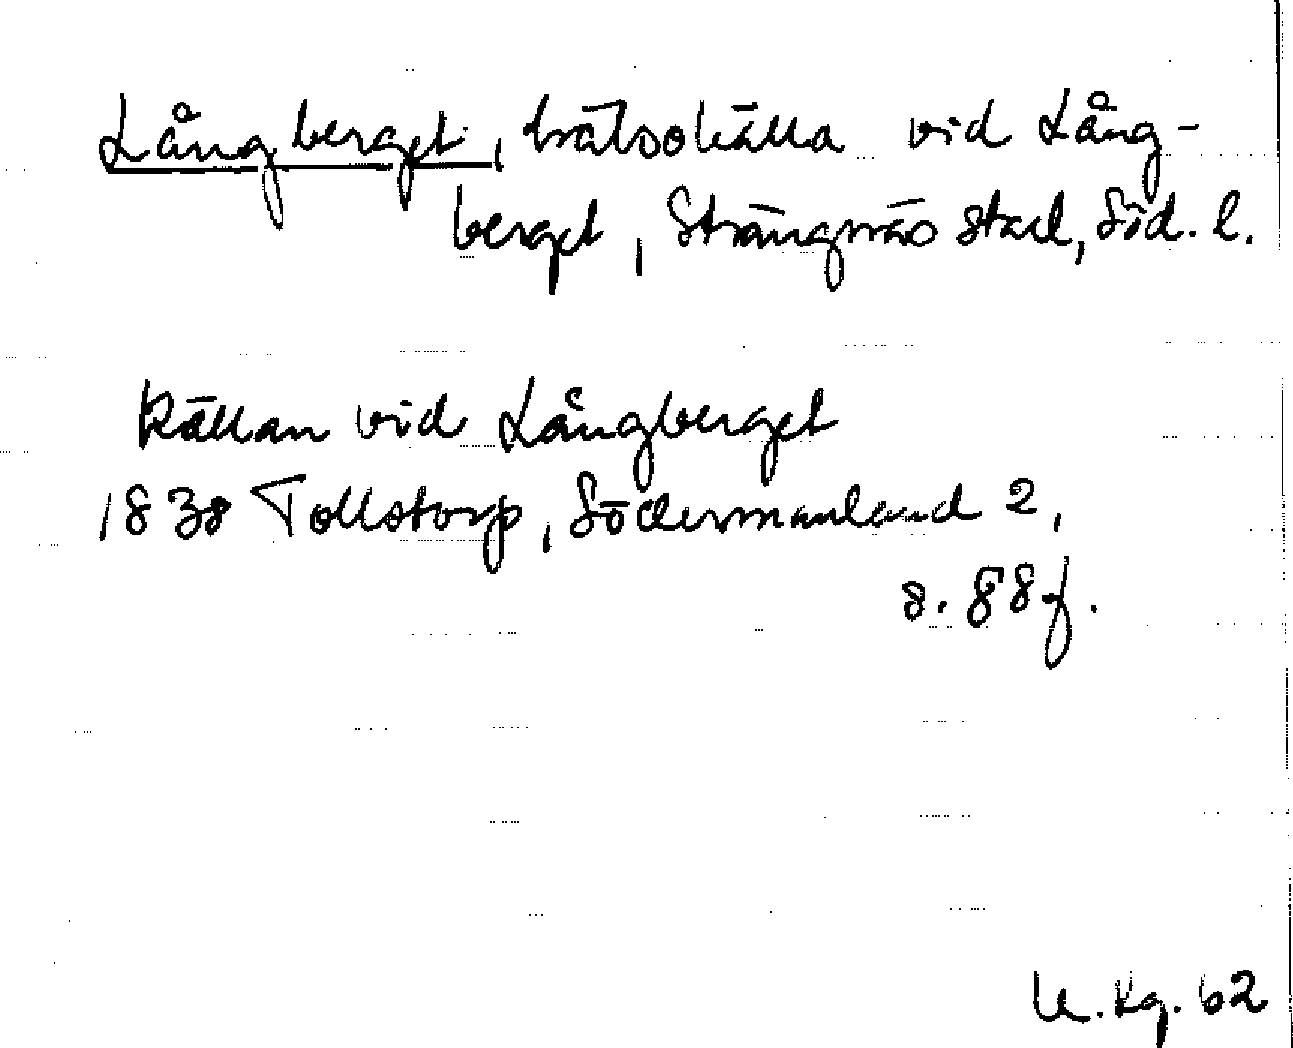 Långberget, hälsokälla vid Lång-
berget, Strängnäs stad, Söd. l.
Källan vid Långberget
1838 Tollstorp, Södermanland 2,
s. 88f.
U. Kg. 62